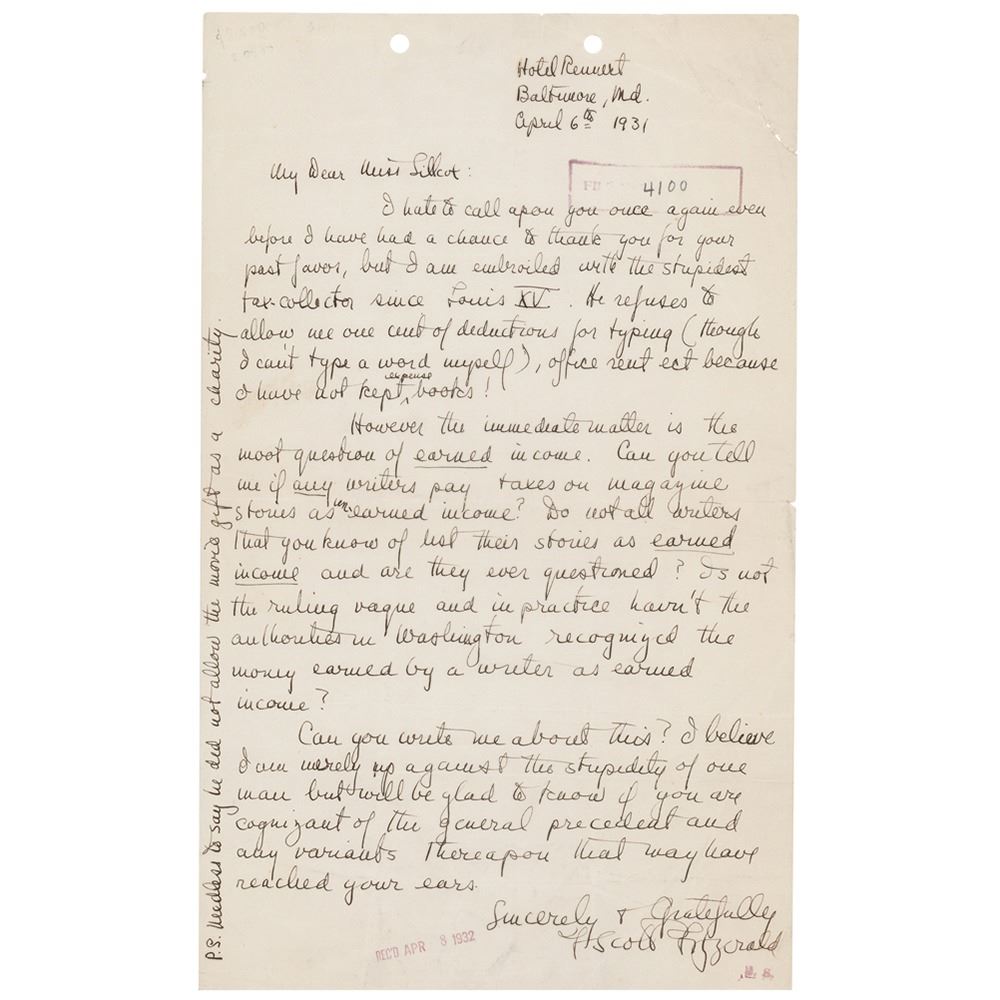 Hotel Rennert
Baltimore, Md.
April 6th 1931
My Dear Miss Sillcox:
4100
I hate to call apon you once again even
before I have had a chance to thank you for your
past favor, but I am embroiled with the stupidest
tax-collector since Louis XV. He refuses to
allow me one cent of deductions for typing (though
I can't type a word myself), office rent ect because
I have not kept expense books!
However the immediate matter is the
moot question of earned income. Can you tell
me if any writers pay taxes on magazine
stories as un-earned income? Do not all writers
that you know of list their stories as earned
income and are they ever questioned? Is not
the ruling vague and in practice havn't the
authorities in Washington recognized the
money earned by a writer as earned
income?
Can you write me about this? I believe
I am merely up against the stupidity of one
man but will be glad to know if you are
cognizant of the general precedent and
any variants thereapon that may have
reached your ears.
Sincerely & Gratefully
F Scott Fitzgerald
REC'D APR 8 1932
P.S. Needless to say he did not allow the movie gift as a charity.